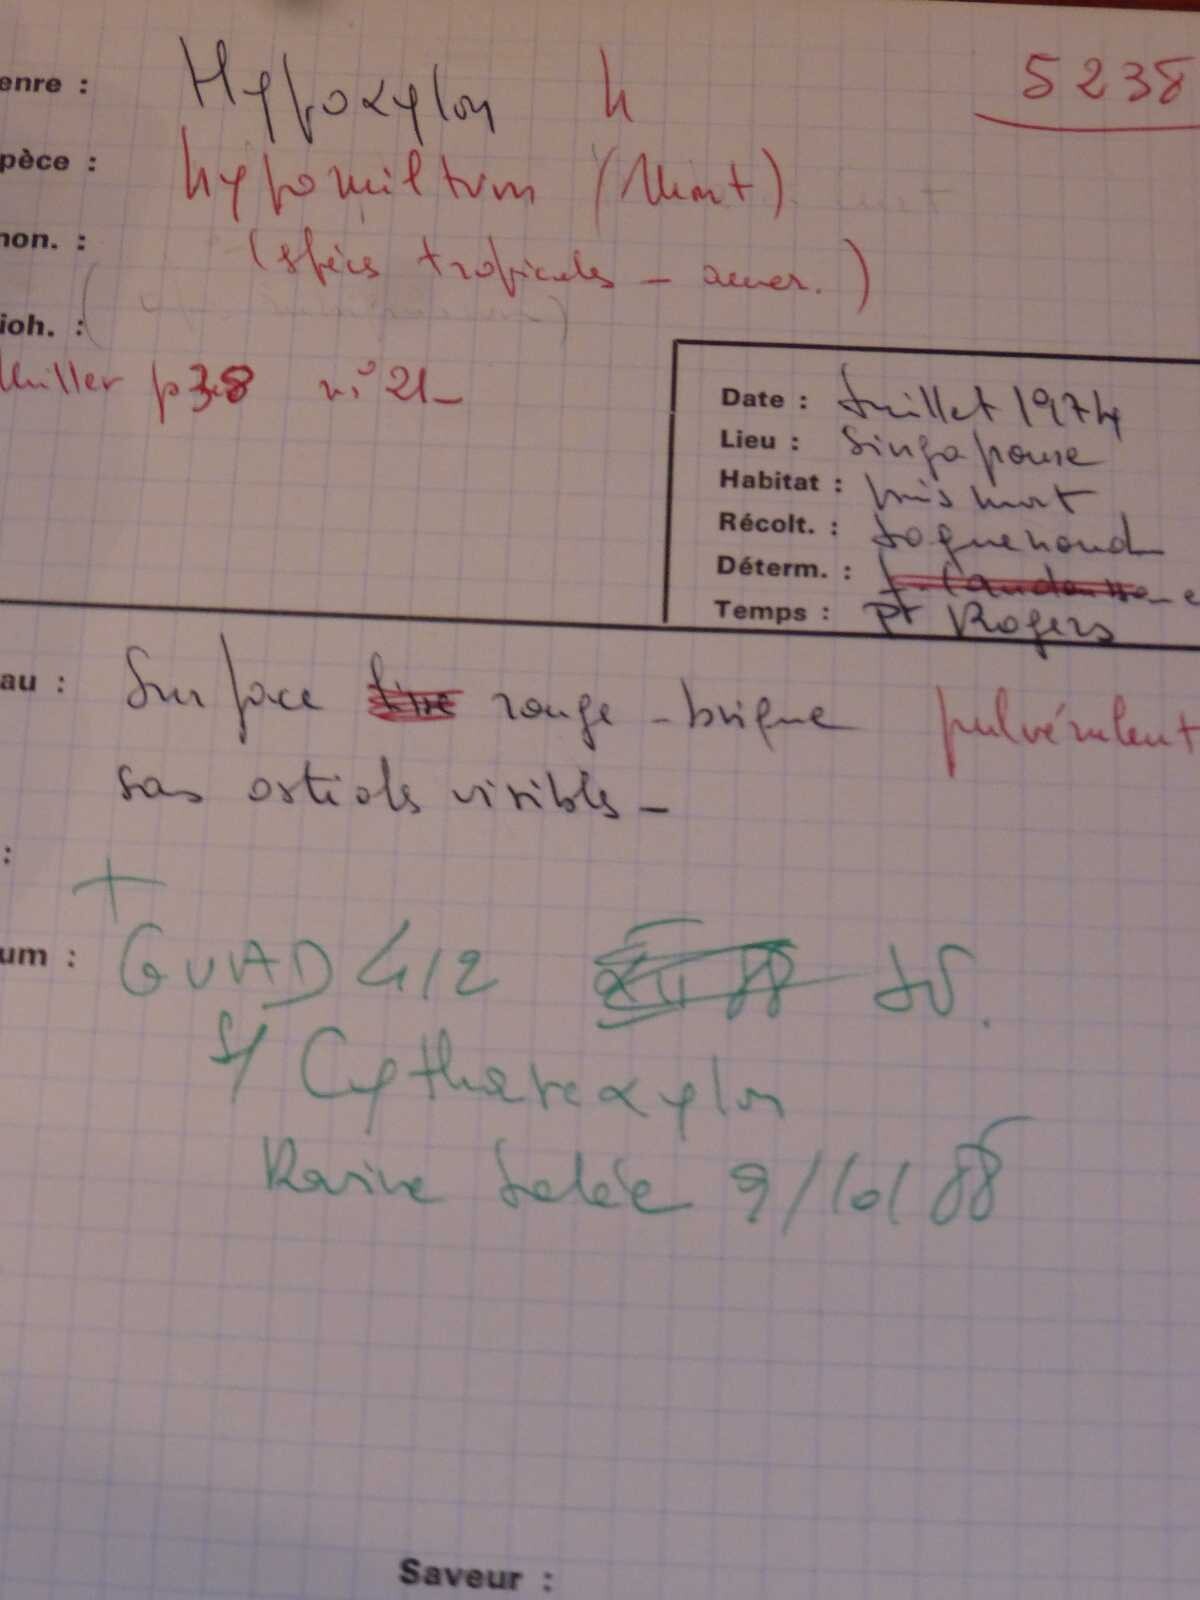 enre : Hypoxylon h 5238
pèce : hypomiltum (Mont)
non. : (spèces tropicales - amer.)
ioh. :
Miller p 38 n° 21_
Date : Juillet 1974
Lieu : Singapoure
Habitat : bois mort
Récolt. : Joguenoud
Déterm. :
Temps : Pr Rogers
au : Surface rouge-brique pulvérulent
sans ostioles visibles _
:
+
um : GUAD 412
s/ Cytharexylon
Ravine Salée 9/10/88
Saveur :